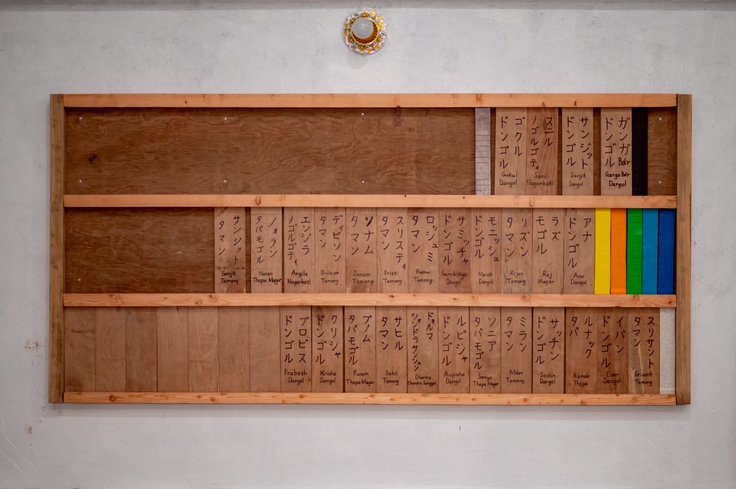 ゴクル
ドンゴル
Gokul
Dangol
スニル
ノゴルゴティ
Sunil
Nagarkoti
サンジット
ドンゴル
Sanjit
Dangol
ガンガBdr
ドンゴル
Ganga Bdr
Dangol
サンジット
タマン
Sanjit
Tamang
ノォラン
タパモゴル
Noran
Thapa Magar
エンジラ
ノゴルゴティ
Angela
Nagarkoti
ディビソン
タマン
Division
Tamang
ソナム
タマン
Sonam
Tamang
スリスティ
タマン
Sristi
Tamang
ロジュミ
タマン
Tamang
サミッチャ
ドンゴル
Dangol
モニッシュ
ドンゴル
Manish
Dangol
リズン
タマン
Rijen
Tamang
ラズ
モゴル
Raj
Magar
アナ
ドンゴル
Dangol
プロビス
ドンゴル
Prabesh
Dangol
クリシャ
ドンゴル
Krisha
Dangol
プノム
タパモゴル
Punam
Thapa Magar
サヒル
タマン
Sahil
Tamang
ドォルマ
ツォンドラサンジョン
ルビジャ
ドンゴル
Dangol
ソニア
タパモゴル
Soniya
Thapa Magar
ミラン
タマン
Milan
Tamang
サッチン
ドンゴル
Sachin
Dangol
ルナック
タパ
Ronak
Thapa
イバン
ドンゴル
Evan
Dangol
スリサント
タマン
Tamang